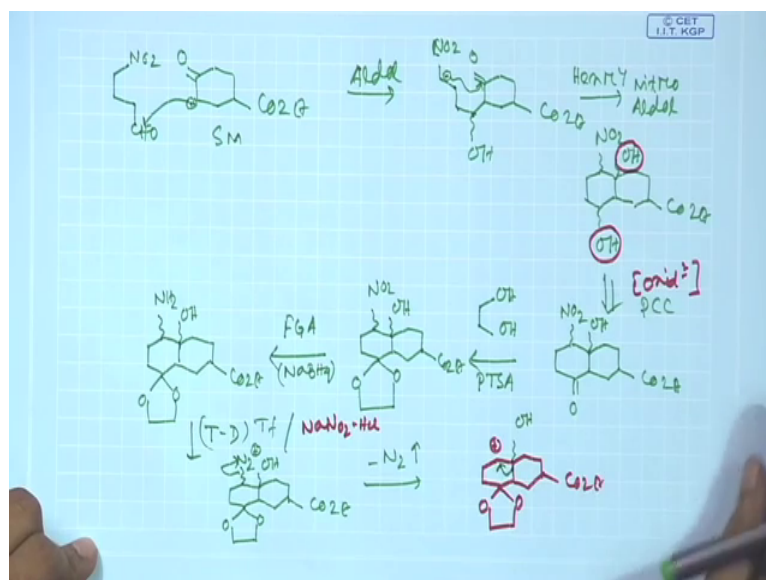 © CET
I.I.T. KGP
NO2
O
CHO
CO2Et
SM
Aldol
NO2
O
CO2Et
OH
Henry Nitro
Aldol
NO2
OH
CO2Et
OH
[Oxidn]
PCC
NO2
OH
CO2Et
O
OH
OH
PTSA
NO2
OH
CO2Et
O
O
FGA
(NaBH4)
NH2
OH
CO2Et
O
O
(T-D) Tf / NaNO2-HCl
N2
⊕
OH
CO2Et
O
O
-N2↑
OH
⊕
CO2Et
O
O